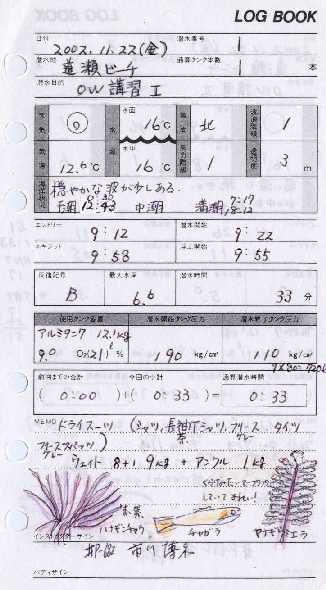 LOG BOOK
日付 2002.11.22(金) 潜水番号 1
潜水地 道瀬ビーチ 通算タンク本数 1 本
潜水目的 OW講習 I
天気 水面 16℃ 風向 北 1
気温 12.6℃ 水中 16℃ 風力 1 透明度 3 m
穏やかな波が少しある.
干潮 12:43 中潮 満潮 7:17 18:12
エントリー 9:12 潜水開始 9:22
エキジット 9:58 浮上開始 9:55
反復記号 B 最大水深 6.6 潜水時間 33 分
使用タンク容量 潜水開始タンク圧力 潜水終了タンク圧力
アルミタンク 12.1kg
9.0 O2(21)% 190 kg/cm² 110 kg/cm²
前回までの合計 今回の小計 通算潜水時間
(0:00)+(0:33)= 0:33
MEMO ドライスーツ (シャツ, 長袖Tシャツ, フリース タイツ
茶 グレー
グレー
ウェイト 8+1 9kg + アンクル 1kg
赤紫
ハナギンチャク チャガラ ヤナギウミエラ
インストラクターサイン 市川
バディサイン